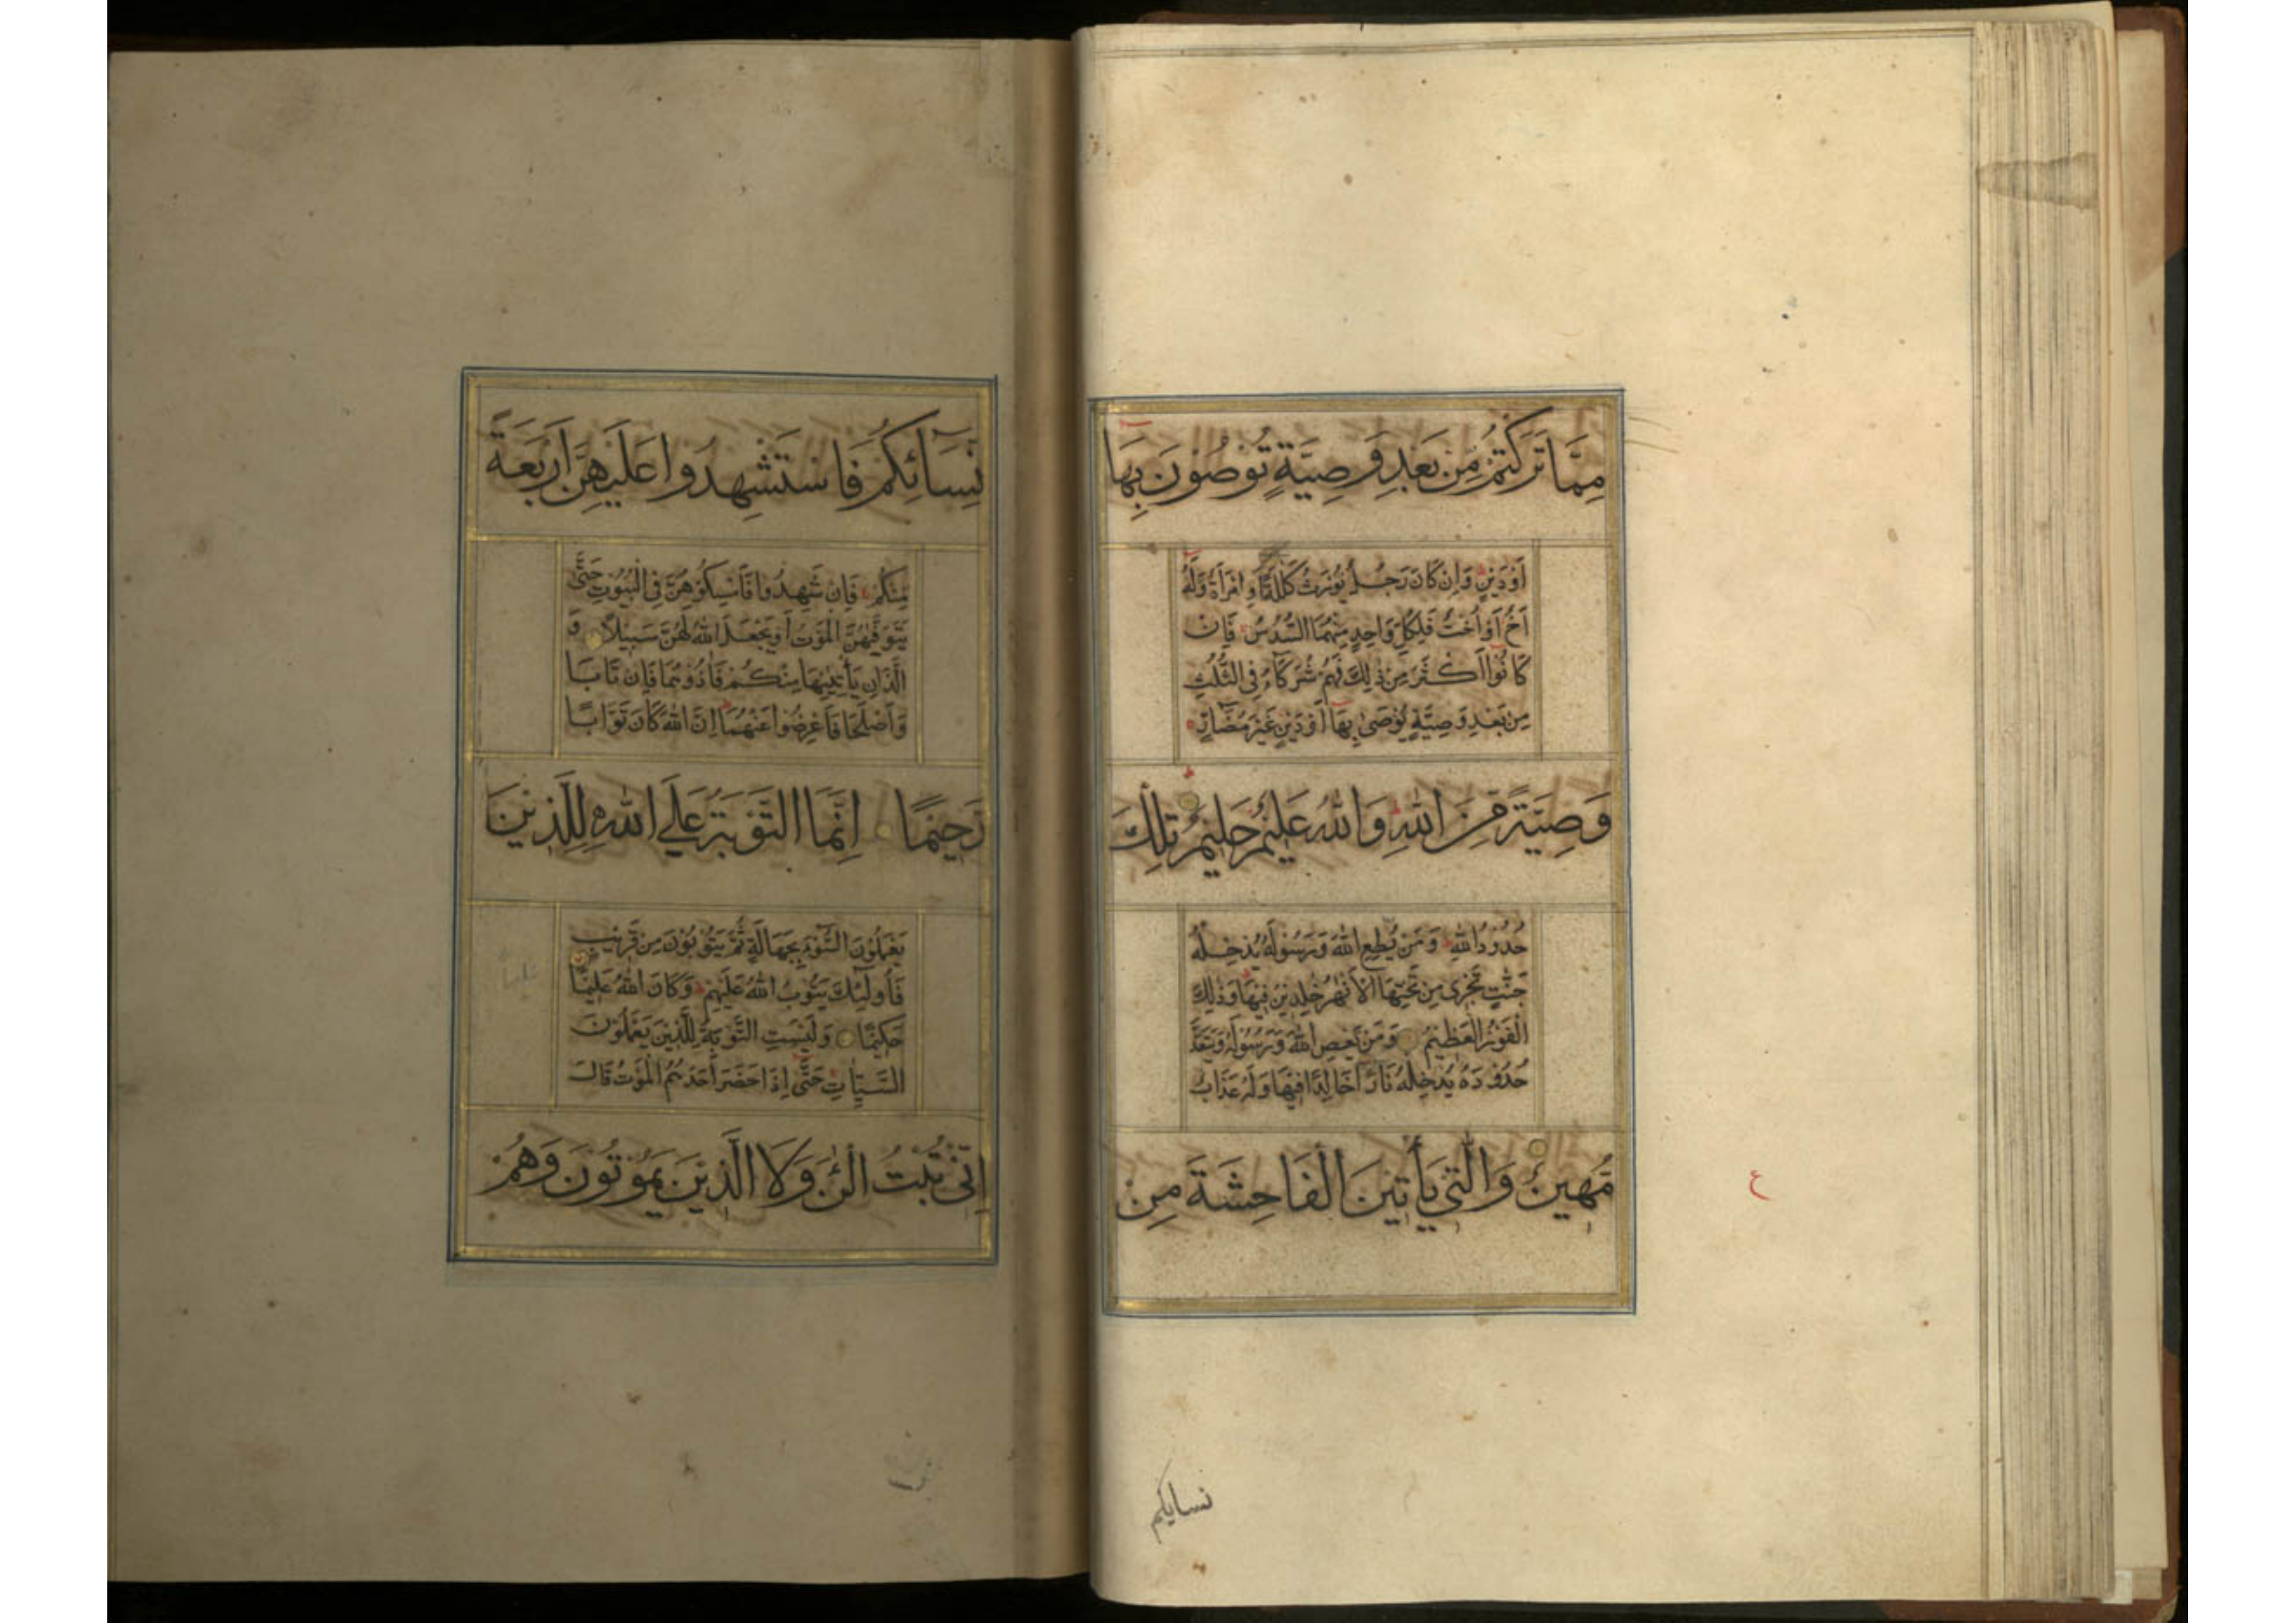 مِمَّا تَرَكْتُمْ مِنْ بَعْدِ وَصِيَّةٍ تُوصُونَ بِهَا
أَوْ دَيْنٍ وَإِنْ كَانَ رَجُلٌ يُورَثُ كَلَالَةً أَوِ امْرَأَةٌ وَلَهُ
أَخٌ أَوْ أُخْتٌ فَلِكُلِّ وَاحِدٍ مِنْهُمَا السُّدُسُ فَإِنْ
كَانُوا أَكْثَرَ مِنْ ذٰلِكَ فَهُمْ شُرَكَاءُ فِي الثُّلُثِ
مِنْ بَعْدِ وَصِيَّةٍ يُوصَىٰ بِهَا أَوْ دَيْنٍ غَيْرَ مُضَارٍّ
وَصِيَّةً مِنَ اللّٰهِ وَاللّٰهُ عَلِيمٌ حَلِيمٌ تِلْكَ
حُدُودُ اللّٰهِ وَمَنْ يُطِعِ اللّٰهَ وَرَسُولَهُ يُدْخِلْهُ
جَنّٰتٍ تَجْرِي مِنْ تَحْتِهَا الْأَنْهٰرُ خٰلِدِينَ فِيهَا وَذٰلِكَ
الْفَوْزُ الْعَظِيمُ وَمَنْ يَعْصِ اللّٰهَ وَرَسُولَهُ وَيَتَعَدَّ
حُدُودَهُ يُدْخِلْهُ نَارًا خَالِدًا فِيهَا وَلَهُ عَذَابٌ
مُهِينٌ وَالّٰتِي يَأْتِينَ الْفَاحِشَةَ مِنْ
ع
نسايكم
نِسَائِكُمْ فَاسْتَشْهِدُوا عَلَيْهِنَّ أَرْبَعَةً
مِنْكُمْ فَإِنْ شَهِدُوا فَأَمْسِكُوهُنَّ فِي الْبُيُوتِ حَتَّىٰ
يَتَوَفّٰىهُنَّ الْمَوْتُ أَوْ يَجْعَلَ اللّٰهُ لَهُنَّ سَبِيلًا وَ
الَّذَانِ يَأْتِيٰنِهَا مِنْكُمْ فَاٰذُوهُمَا فَإِنْ تَابَا
وَأَصْلَحَا فَأَعْرِضُوا عَنْهُمَا إِنَّ اللّٰهَ كَانَ تَوَّابًا
رَحِيمًا إِنَّمَا التَّوْبَةُ عَلَى اللّٰهِ لِلَّذِينَ
يَعْمَلُونَ السُّوءَ بِجَهَالَةٍ ثُمَّ يَتُوبُونَ مِنْ قَرِيبٍ
فَأُولٰئِكَ يَتُوبُ اللّٰهُ عَلَيْهِمْ وَكَانَ اللّٰهُ عَلِيمًا
حَكِيمًا وَلَيْسَتِ التَّوْبَةُ لِلَّذِينَ يَعْمَلُونَ
السَّيِّاٰتِ حَتَّىٰ إِذَا حَضَرَ أَحَدَهُمُ الْمَوْتُ قَالَ
إِنِّي تُبْتُ الْئٰنَ وَلَا الَّذِينَ يَمُوتُونَ وَهُمْ